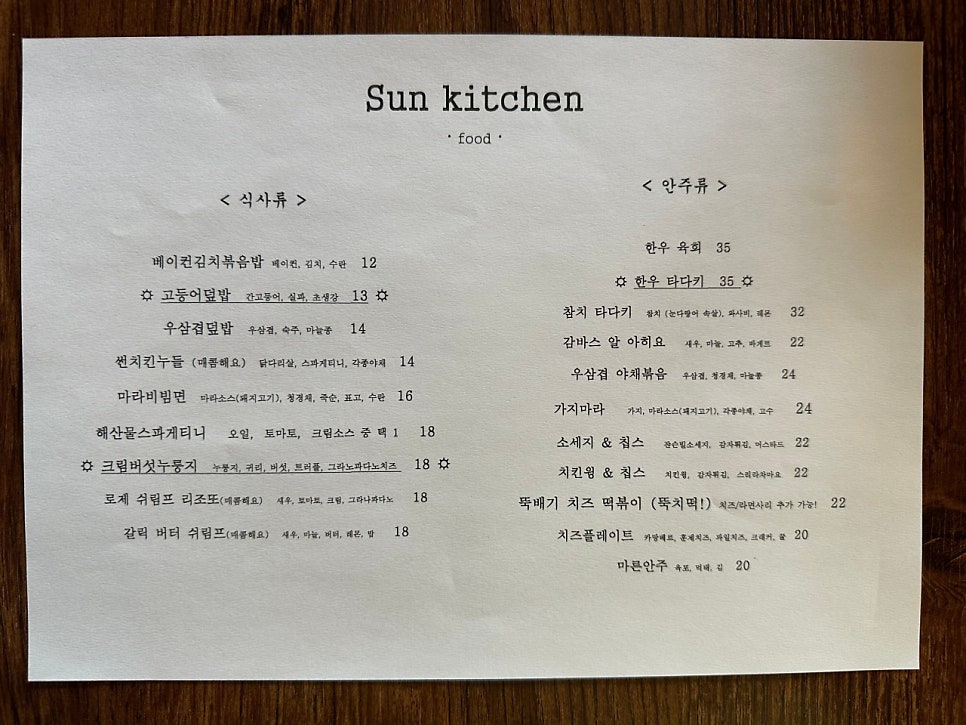 Sun kitchen
· food ·
< 식사류 >
베이컨김치볶음밥 베이컨, 김치, 수란 12
☼ 고등어덮밥 간고등어, 실파, 초생강 13 ☼
우삼겹덮밥 우삼겹, 숙주, 마늘쫑 14
썬치킨누들 (매콤해요) 닭다리살, 스파게티니, 각종야채 14
마라비빔면 마라소스(돼지고기), 청경채, 죽순, 표고, 수란 16
해산물스파게티니 오일, 토마토, 크림소스 중 택 1 18
☼ 크림버섯누룽지 누룽지, 귀리, 버섯, 트러플, 그라노파다노치즈 18 ☼
로제 쉬림프 리조또(매콤해요) 새우, 토마토, 크림, 그라나파다노 18
갈릭 버터 쉬림프(매콤해요) 새우, 마늘, 버터, 레몬, 밥 18
< 안주류 >
한우 육회 35
☼ 한우 타다키 35 ☼
참치 타다키 참치 (눈다랑어 속살), 와사비, 레몬 32
감바스 알 아히요 새우, 마늘, 고추, 바게트 22
우삼겹 야채볶음 우삼겹, 청경채, 마늘쫑 24
가지마라 가지, 마라소스(돼지고기), 각종야채, 고수 24
소세지 & 칩스 잔슨빌소세지, 감자튀김, 머스타드 22
치킨윙 & 칩스 치킨윙, 감자튀김, 스리라차마요 22
뚝배기 치즈 떡볶이 (뚝치떡!) 치즈/라면사리 추가 가능! 22
치즈플레이트 까망베르, 훈제치즈, 과일치즈, 크래커, 꿀 20
마른안주 육포, 먹태, 김 20